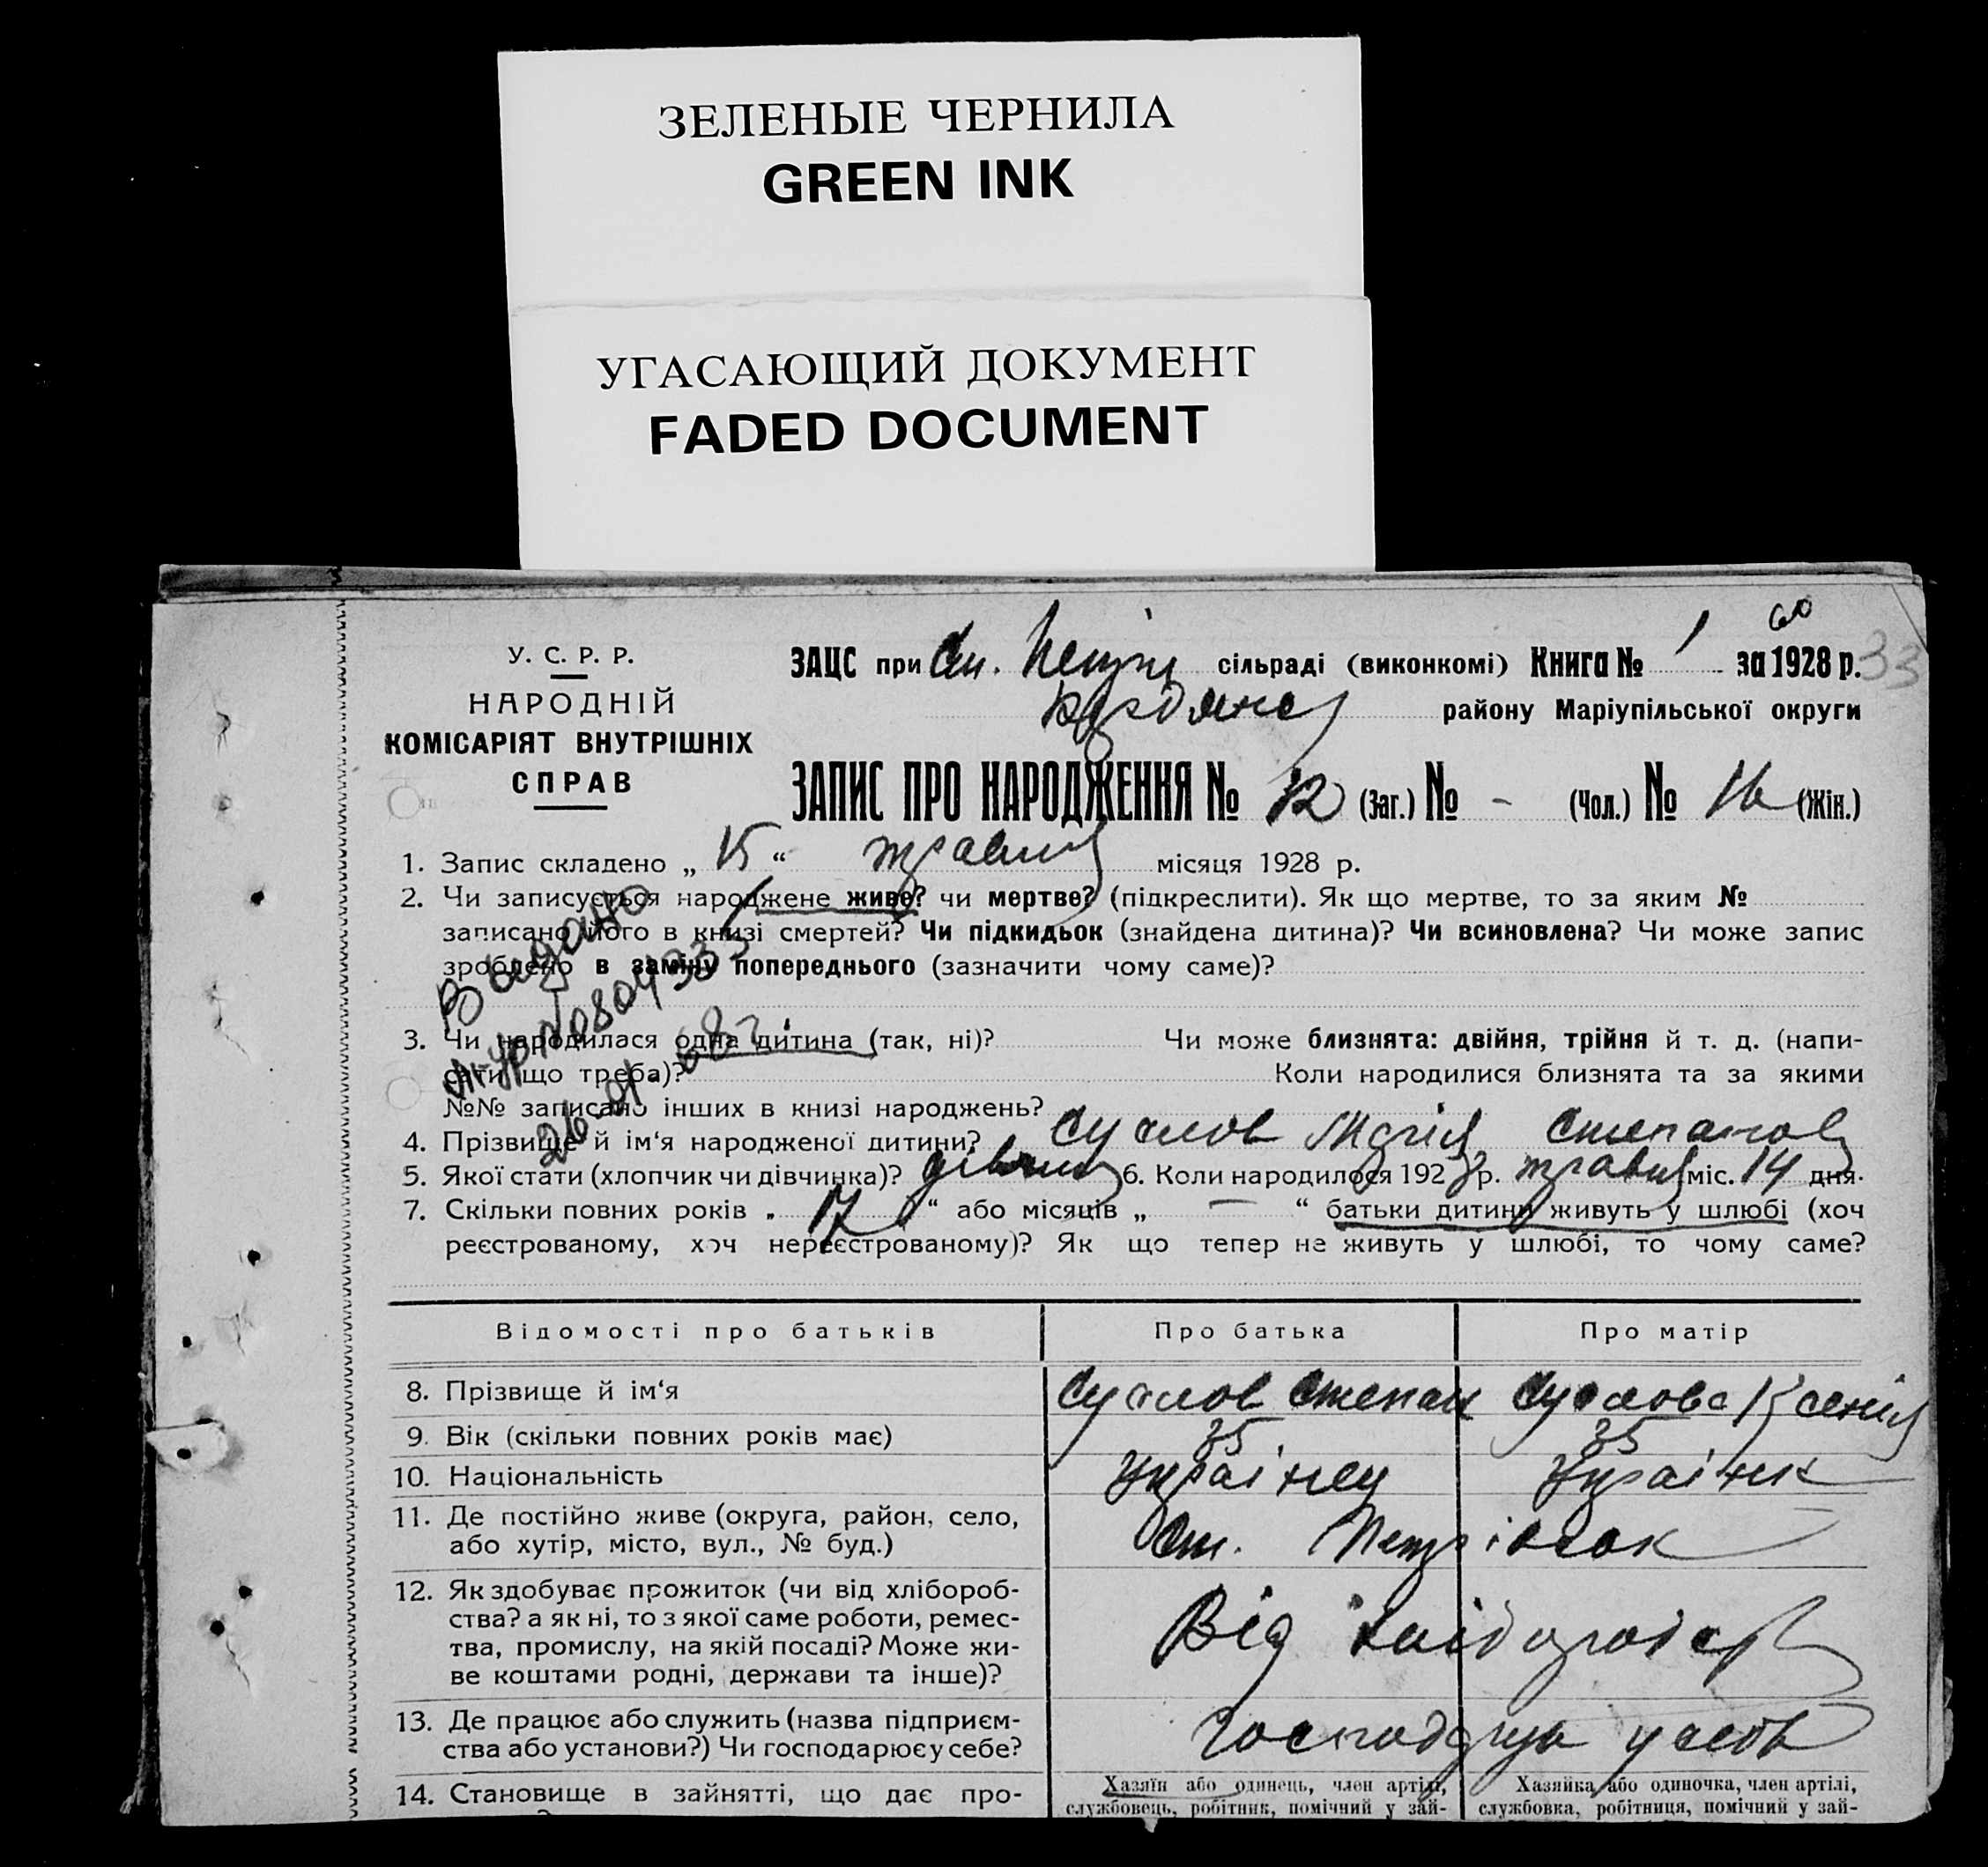 ЗЕЛЕНЫЕ ЧЕРНИЛА
GREEN INK
УГАСАЮЩИЙ ДОКУМЕНТ
FADED DOCUMENT
60
33
У. С. Р. Р.
НАРОДНІЙ
КОМІСАРІЯТ ВНУТРІШНІХ
СПРАВ
ЗАЦС при Ст. сільраді (виконкомі) Книга № 1 за 1928 р.
району Маріупільської округи
ЗАПИС ПРО НАРОДЖЕННЯ № 32 (Заг.) № - (Чол.) № 16 (Жін.)
1. Запис складено „ 15 “ травня місяця 1928 р.
2. Чи записується народжене живе? чи мертве? (підкреслити). Як що мертве, то за яким №
записано його в книзі смертей? Чи підкидьок (знайдена дитина)? Чи всиновлена? Чи може запис
зроблено в заміну попереднього (зазначити чому саме)?
Видано
3. Чи народилася одна дитина (так, ні)? Чи може близнята: двійня, трійня й т. д. (напи-
сати що треба)? Коли народилися близнята та за якими
№№ записано інших в книзі народжень?
4. Прізвище й ім‘я народженої дитини? Марія Степанов
5. Якої стати (хлопчик чи дівчинка)? дівчина 6. Коли народилося 1928 р. травня міс. 14 дня.
7. Скільки повних років „ 17 “ або місяців „ — “ батьки дитини живуть у шлюбі (хоч
реєстрованому, хоч нереєстрованому)? Як що тепер не живуть у шлюбі, то чому саме?
Відомості про батьків Про батька Про матір
8. Прізвище й ім‘я Степан Ксенія
9. Вік (скільки повних років має) 35 35
10. Національність Українец Українк
11. Де постійно живе (округа, район, село,
або хутір, місто, вул., № буд.) Ст.
12. Як здобуває прожиток (чи від хлібороб-
ства? а як ні, то з якої саме роботи, ремес-
тва, промислу, на якій посаді? Може жи-
ве коштами родні, держави та інше)? Від
13. Де працює або служить (назва підприєм-
ства або установи?) Чи господарює у себе? у себе
14. Становище в зайнятті, що дає про-
Хазяїн або одинець, член артілі,
службовець, робітник, помічний у зай-
Хазяйка або одиночка, член артілі,
службовка, робітниця, помічний у зай-